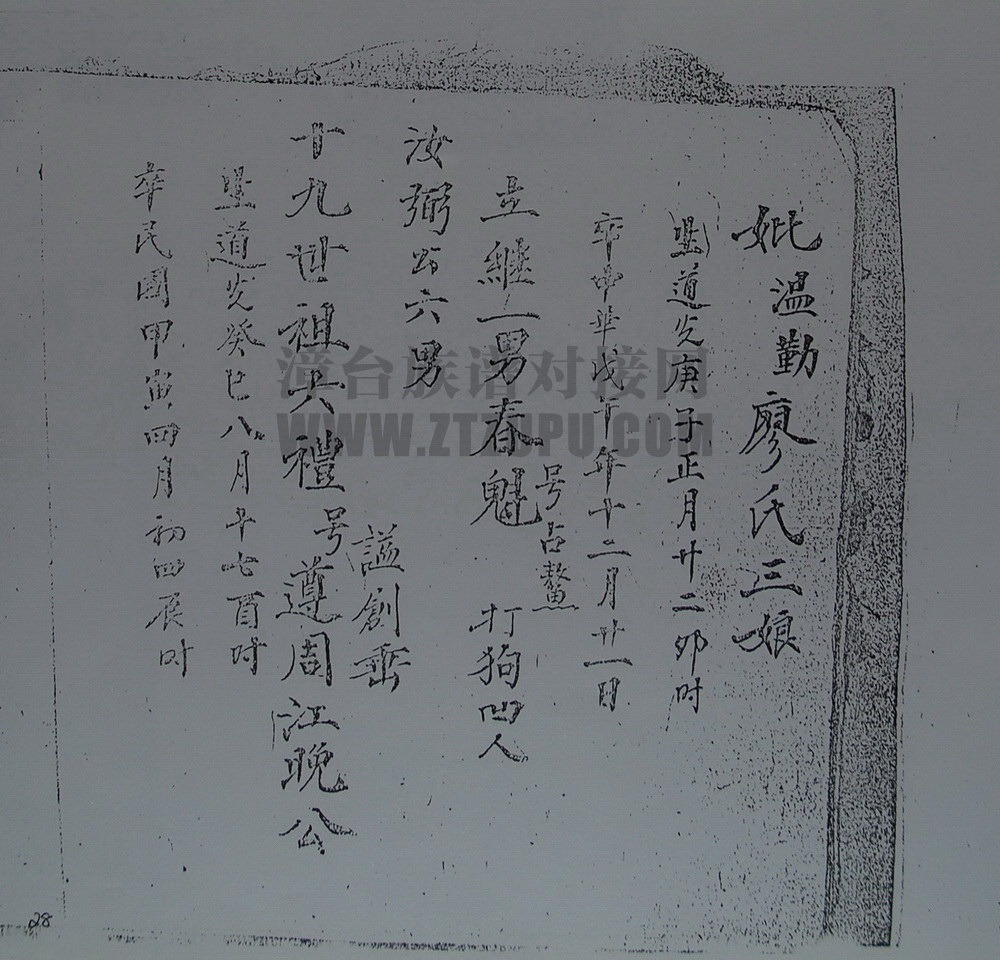 妣溫勤廖氏三娘
生道光庚子正月廿二卯时
卒中华戊午年十二月廿一日
立继一男春魁 号占鳌 打狗凹人
汝弼公六男
十九世祖六禮 号遵周 謚創垂 江晚公
生道光癸巳八月廿七酉时
卒民國甲寅四月初四辰时
漳台族谱对接网
WWW.ZTZUPU.COM
28